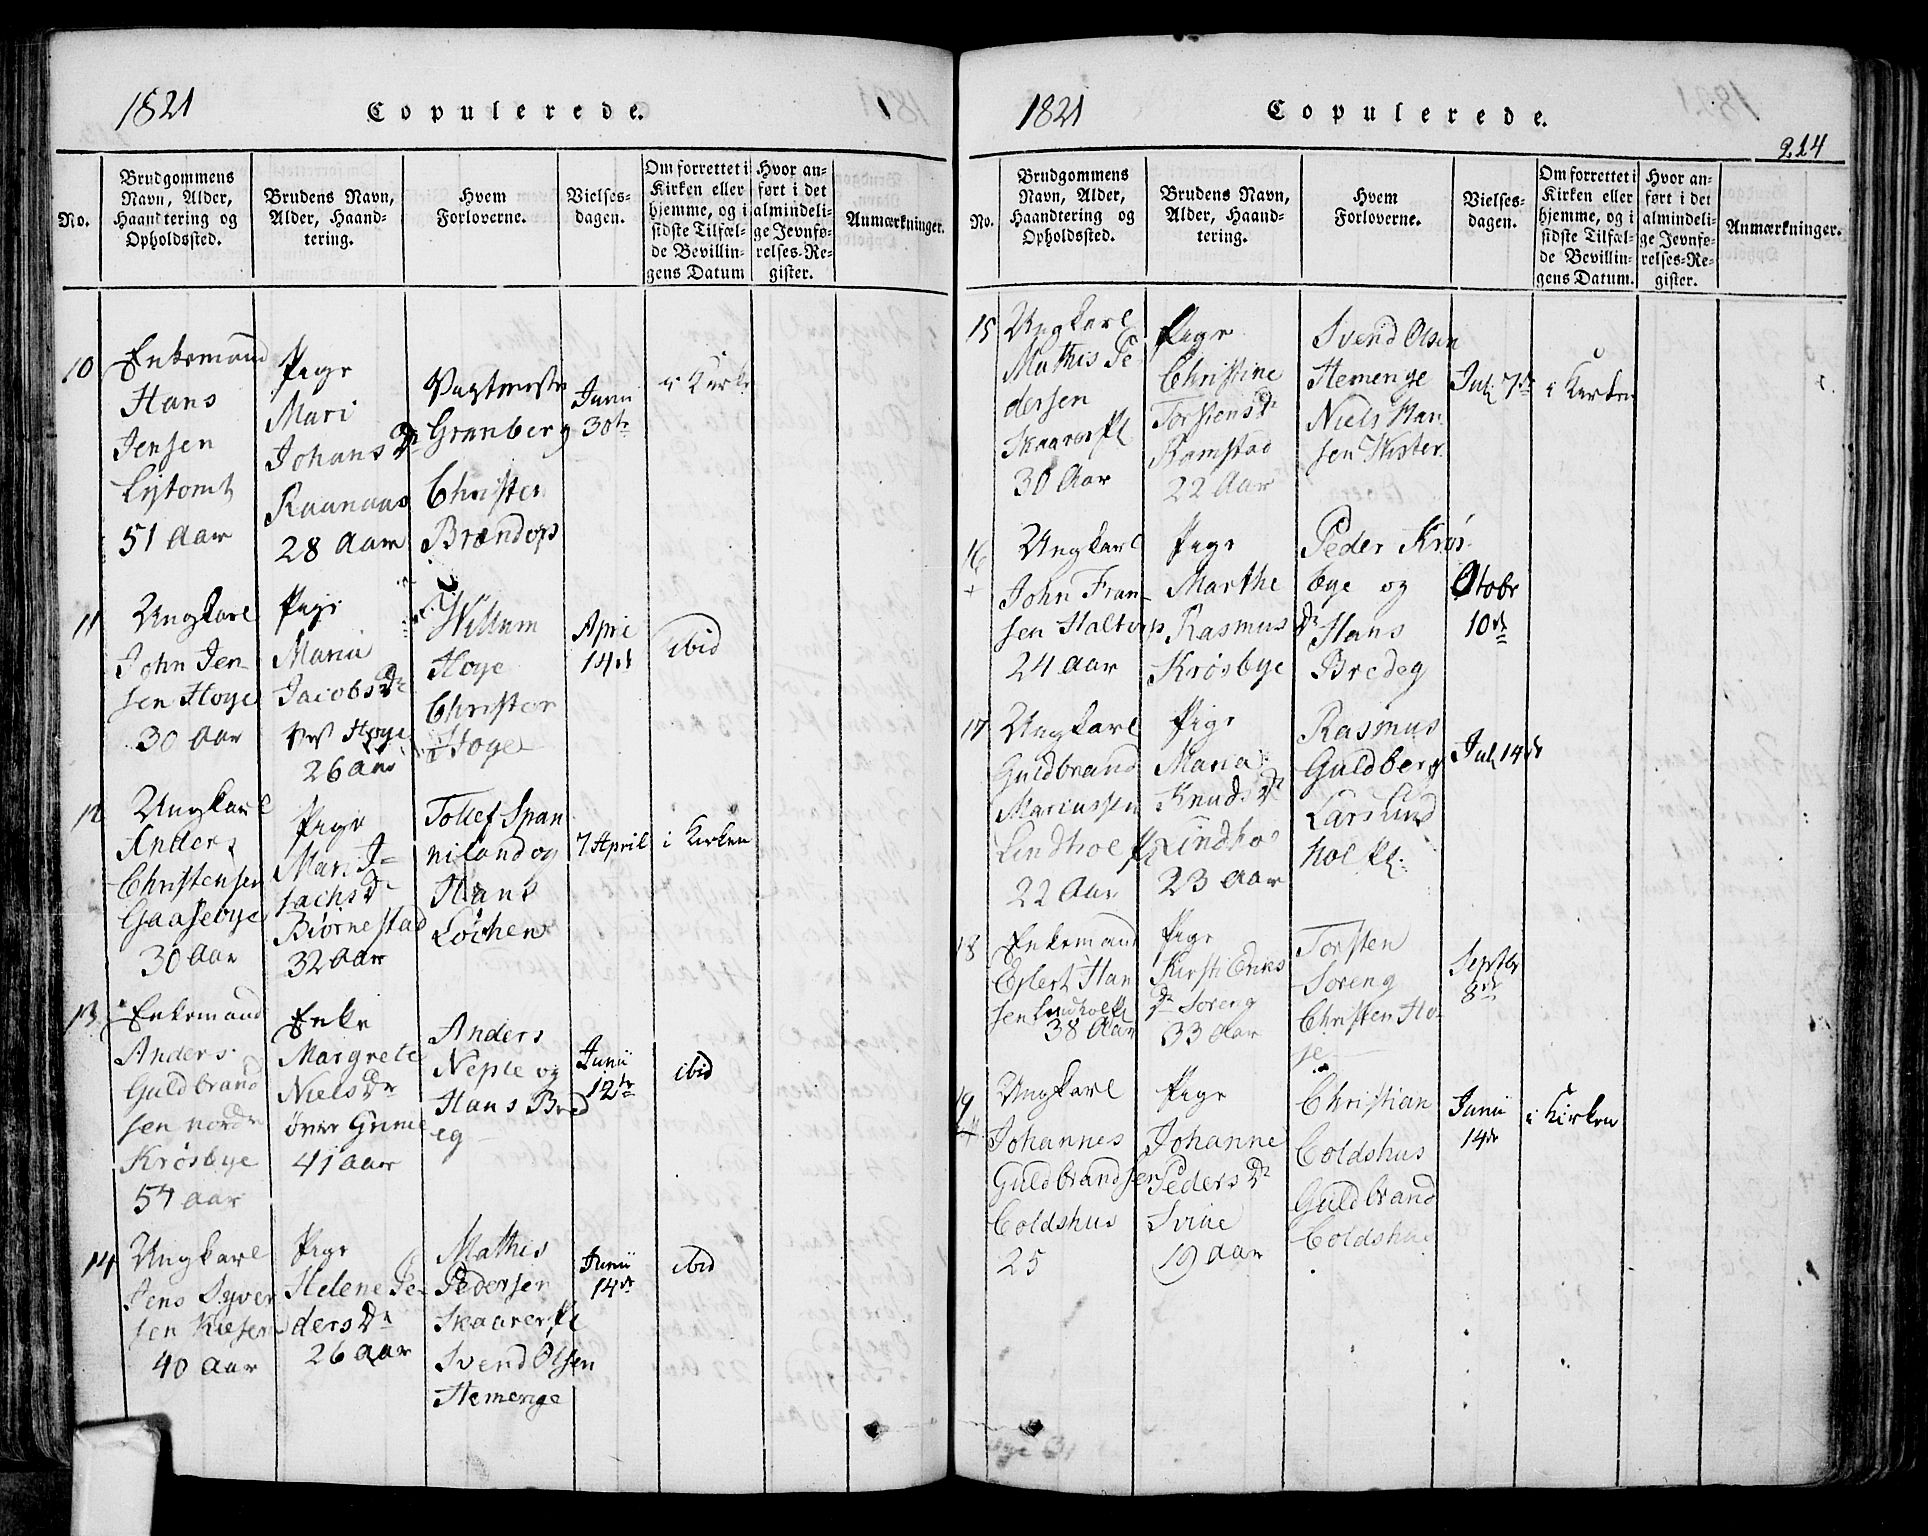 1821
Copulerede.
No.
Brudgommens
Navn, Alder,
Haandtering og
Opholdssted.
Brudens Navn,
Alder, Haand-
tering.
Hvem
Forloverne.
Vielses-
dagen.
Om forrettet i
Kirken eller
hjemme, og i
sidste Tilfæl-
de Bevillin-
gens Datum
Hvor an-
ført i det
almindeli-
ge Jevnfø-
relses-Re-
gister.
Anmærkninger.
10
Enkemand
Hans
Jensen
51 Aar
Pige
Mari
Johans Dr
Raanaas
28 Aar
Vagtmestr
Granberg
Christen
Brændop
Junii
30te
i Kirke
11
Ungkarl
John Jen-
sen Hoye
30 Aar
Pige
Maria
Jacobs Dr
Hoye
26 Aar
Willum
Hoye
Christen
Hoye
April
14de
ibid
12
Ungkarl
Anders
Christensen
Gaasebye
30 Aar
Pige
Mari I-
sachs Dr
Biørnestad
32 Aar
Tollef Span
niland og
Hans
Løchen
7 April
i Kirken
13
Enkemand
Anders
Guldbrand
sen nordr
Krøsbye
54 aar
Enke
Margrete
Niels Dr
øvre Grime
41 Aar
Anders
Neple og
Hans Bred
eg
Junii
12te
ibid
14
Ungkarl
Jens Syver
sen
40 Aar
Pige
Helene Pe-
ders Dr
26 Aar
Mathis
Pedersen
Skaarer Pl
Svend Olsen
Hemenge
Junii
14de
ibid
1821
Copulerede.
214
No.
Brudgommens
Navn, Alder,
Haandtering og
Opholdssted.
Brudens Navn,
Alder, Haand-
tering.
Hvem
Forloverne.
Vielses-
dagen.
Om forrettet i
Kirken eller
hjemme, og i
sidste Tilfæl-
de Bevillin-
gens Datum.
Hvor an-
ført i det
almindeli-
ge Jevnfø-
relses-Re-
gister.
Anmærkninger.
15
Ungkarl
Mathis Pe
dersen
Skaarer Pl
30 Aar
Pige
Christine
Torstens Dr
Ramstad
22 Aar
Svend Olsen
Hemenge
Niels Han
sen
Juli 7de
i Kirken
16
Ungkarl
John Fran-
sen
24 Aar
Pige
Marthe
Rasmus Dr
Krøsbye
Peder Krøs-
bye og
Hans
Bredeg
Otobr
10de
17
Ungkarl
Guldbrand
Mariussen
Lindhol Pl
22 Aar
Pige
Maria
Knuds Dr
Lindho
23 Aar
Rasmus
Guldberg
Lars Lind
hol Pl.
Juli 14de
18
Enkemand
Eglert Han
sen Lindhol Pl
38 Aar
Pige
Kirsti Eriks
Dr Soreng
33 Aar
Torsten
Soreng
Christen Ho-
ye
Septbr
8de
19
Ungkarl
Johannes
Guldbrandsen
Coldshus
25
Pige
Johanne
Peders Dr
Svine
19 Aar
Christian
Coldshus
Guldbrand
Coldshus
Junii
14de
i Kirken